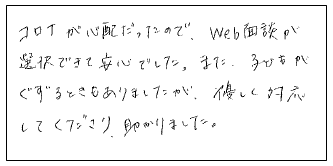 コロナが心配だったので、Web面談が
選択できて安心でした。また、子どもが
ぐずるときもありましたが、優しく対応
してくださり、助かりました。